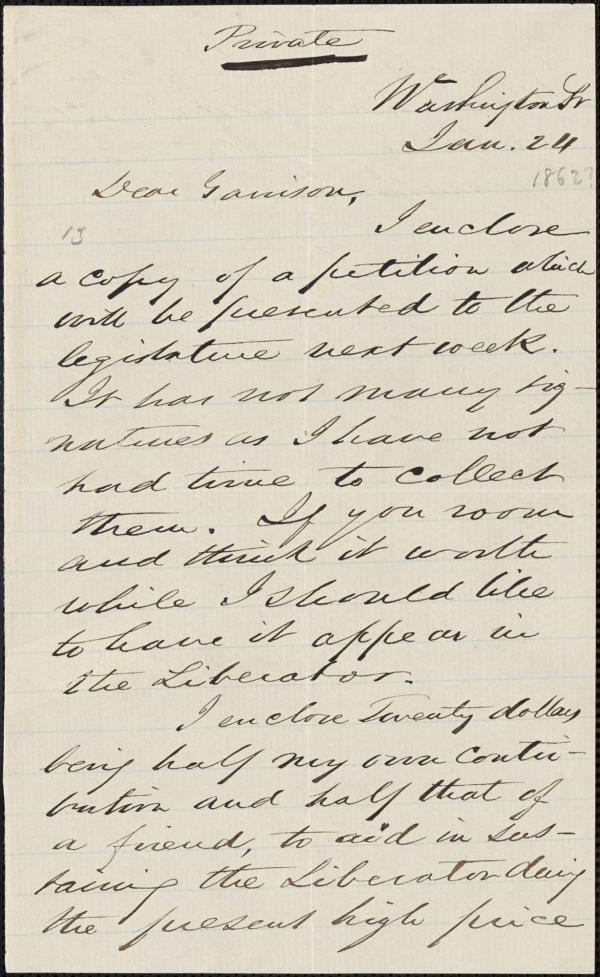 Private
Washington St
Jan. 24
1862?
Dear Garrison,
13
I enclose
a copy of a petition which
will be presented to the
legislature next week.
It has not many sig-
natures as I have not
had time to collect
them. If you room
and think it worth
while I should like
to have it appear in
the Liberator.
I enclose Twenty dollars
being half my own contri-
bution and half that of
a friend, to aid in sus-
taining the Liberator
the present high price